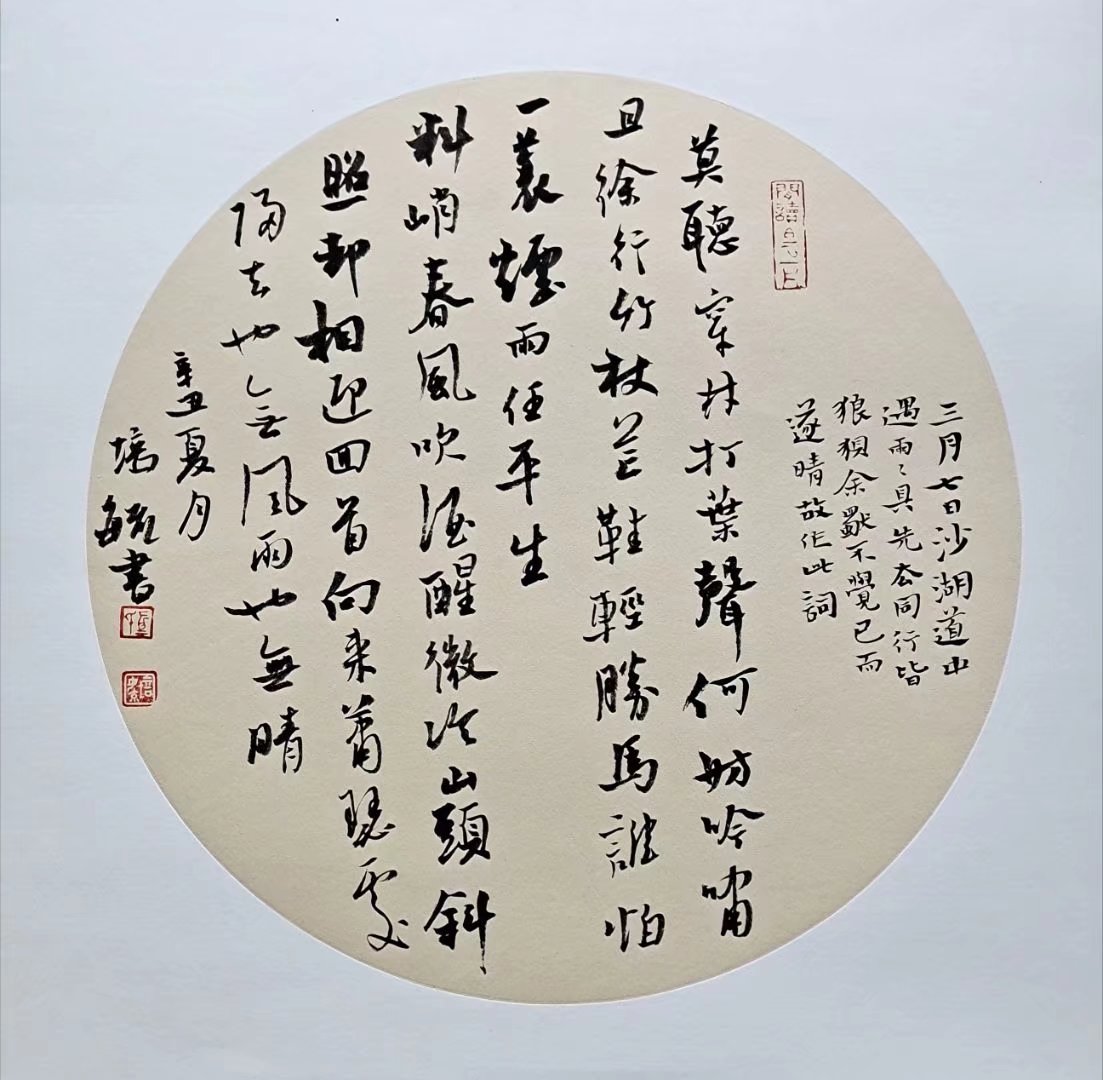 三月七日沙湖道中
遇雨々具先去同行皆
狼狽余獨不覺已而
遂晴故作此詞
莫聽穿林打葉聲何妨吟嘯
且徐行竹杖芒鞋輕勝馬誰怕
一蓑煙雨任平生
料峭春風吹酒醒微冷山頭斜
照却相迎回首向来蕭瑟處
歸去也無風雨也無晴
辛丑夏月
書